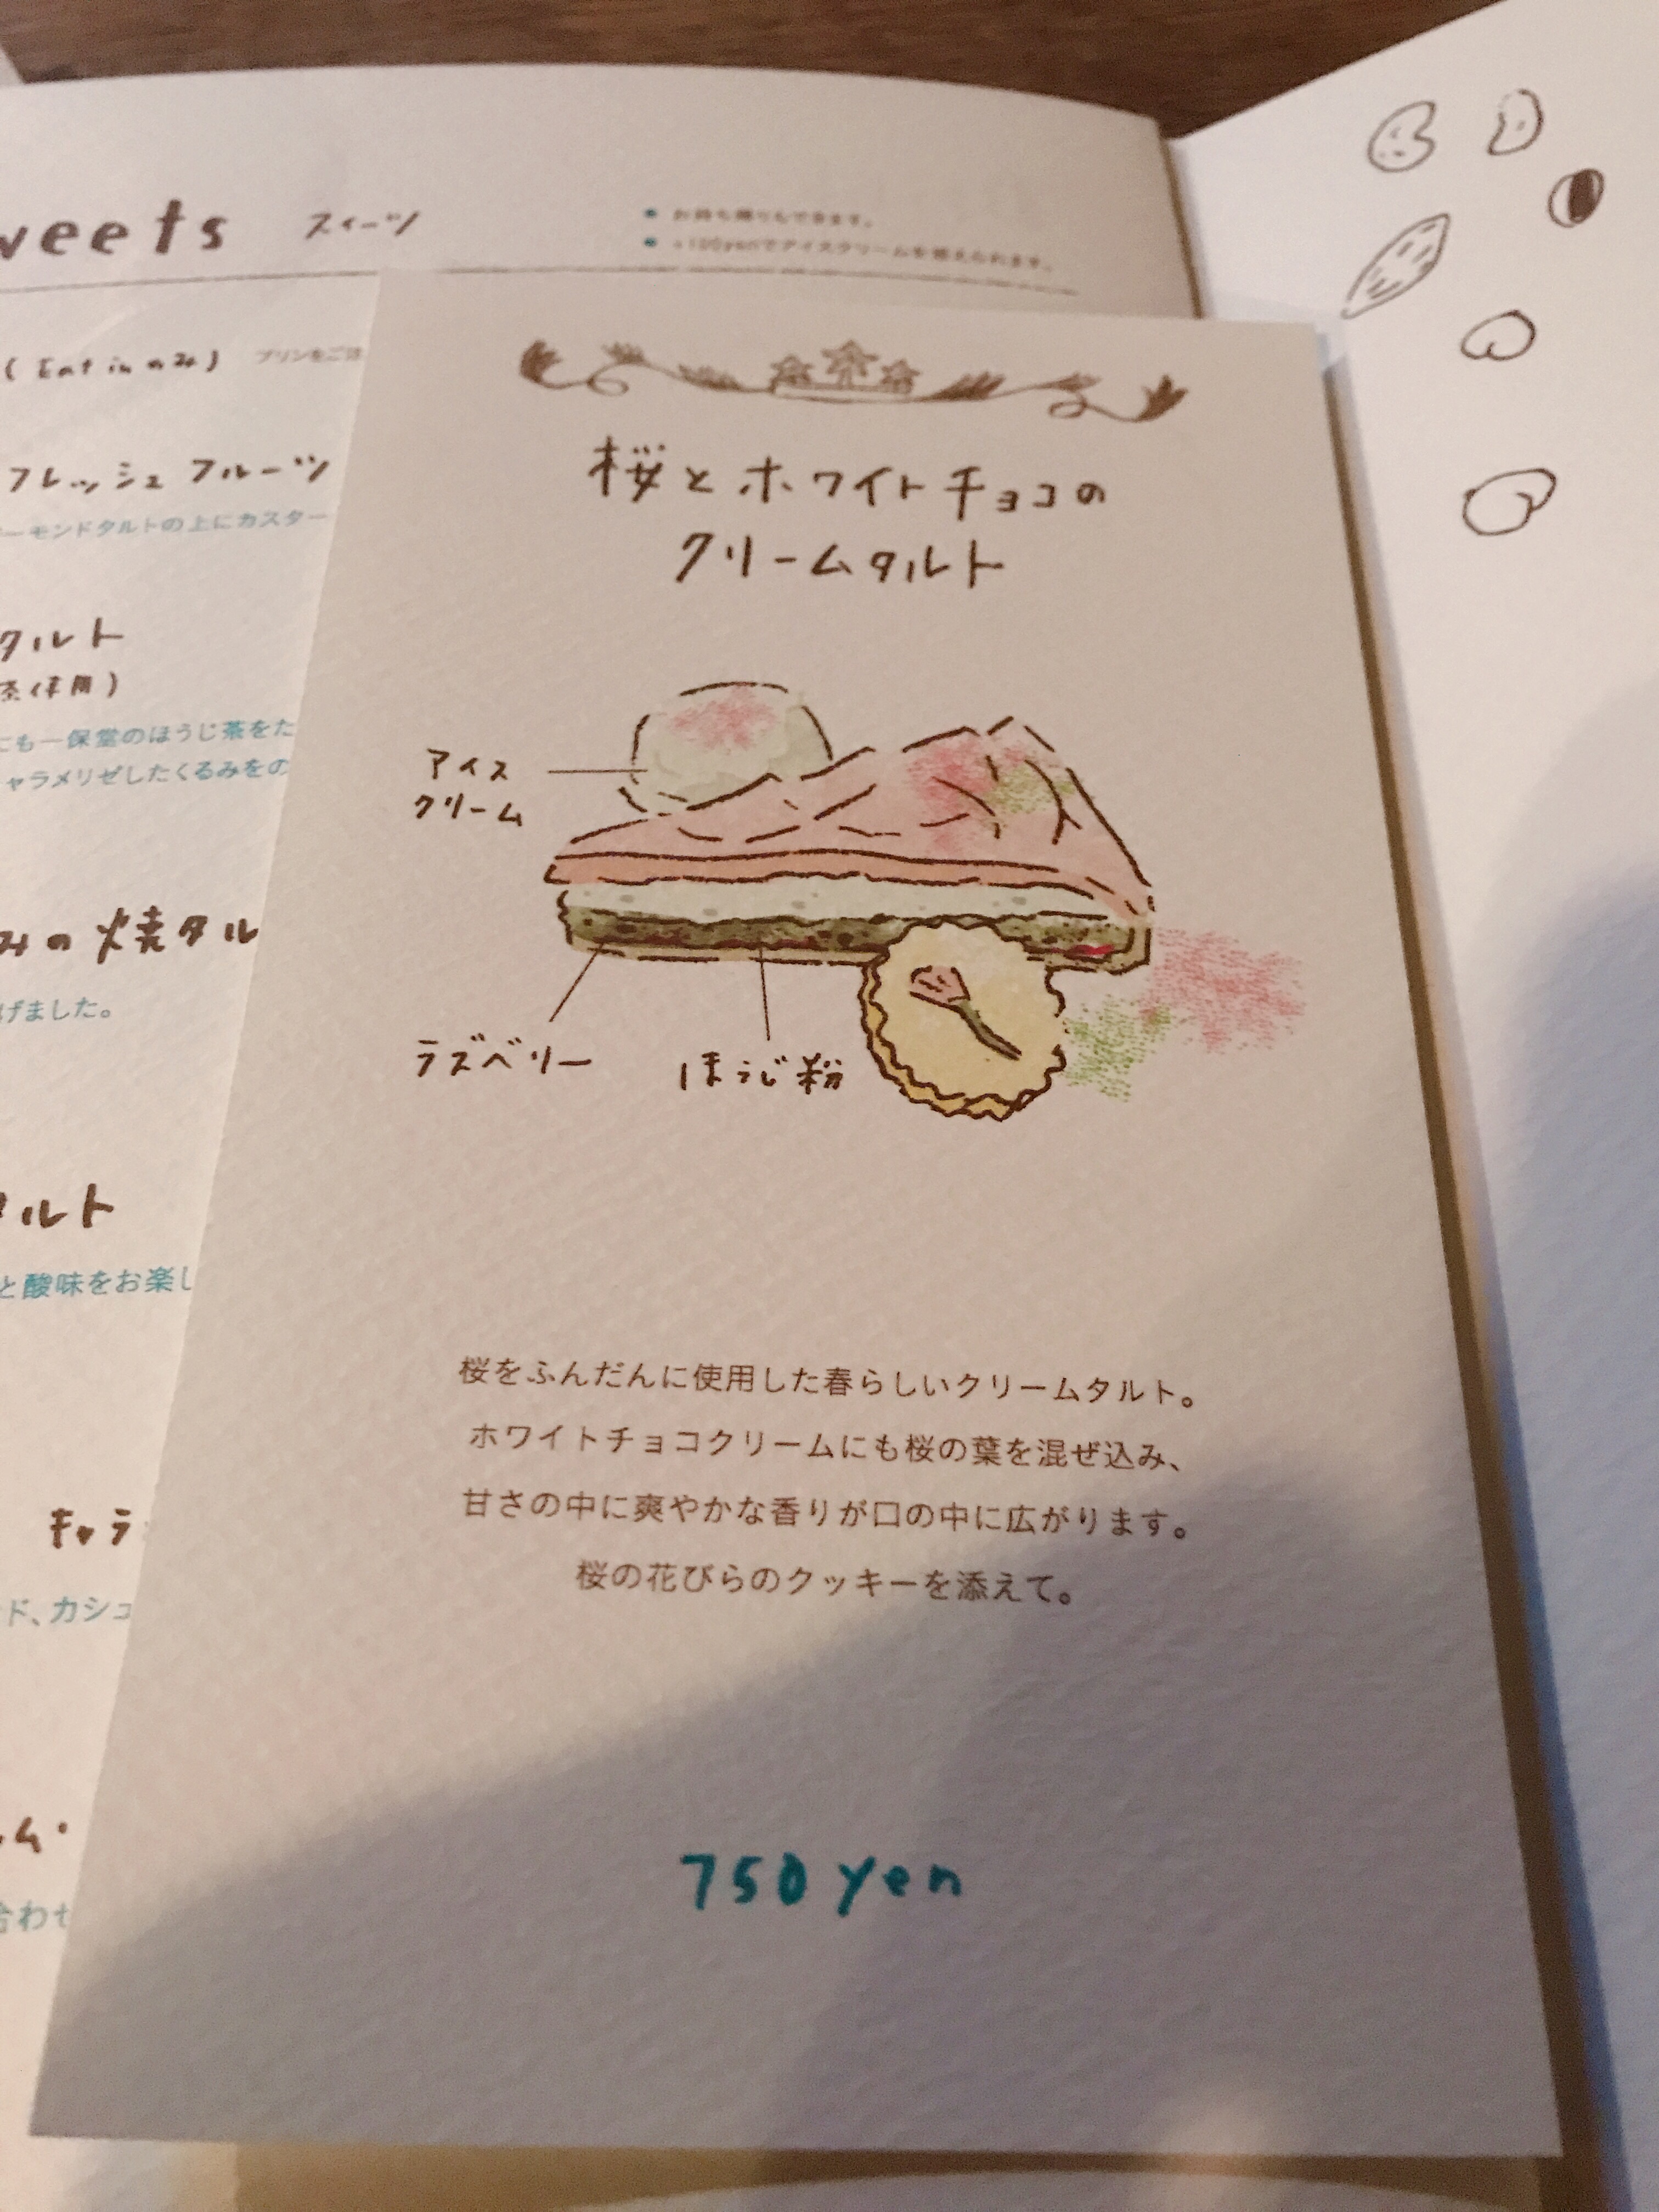 weets スイーツ
お持ち帰りもできます。
+100yenでアイスクリームを添えられます。
(Eat inのみ) プリンをご注
フレッシュフルーツ
ーモンドタルトの上にカスター
タルト
茶使用)
にも一保堂のほうじ茶をた
ャラメリゼしたくるみをの
みの焼タル
げました。
タルト
と酸味をお楽し
キャラ
ド、カシュ
ム・
合わせ
桜とホワイトチョコの
クリームタルト
アイス
クリーム
ラズベリー
ほうじ粉
桜をふんだんに使用した春らしいクリームタルト。
ホワイトチョコクリームにも桜の葉を混ぜ込み、
甘さの中に爽やかな香りが口の中に広がります。
桜の花びらのクッキーを添えて。
750 yen